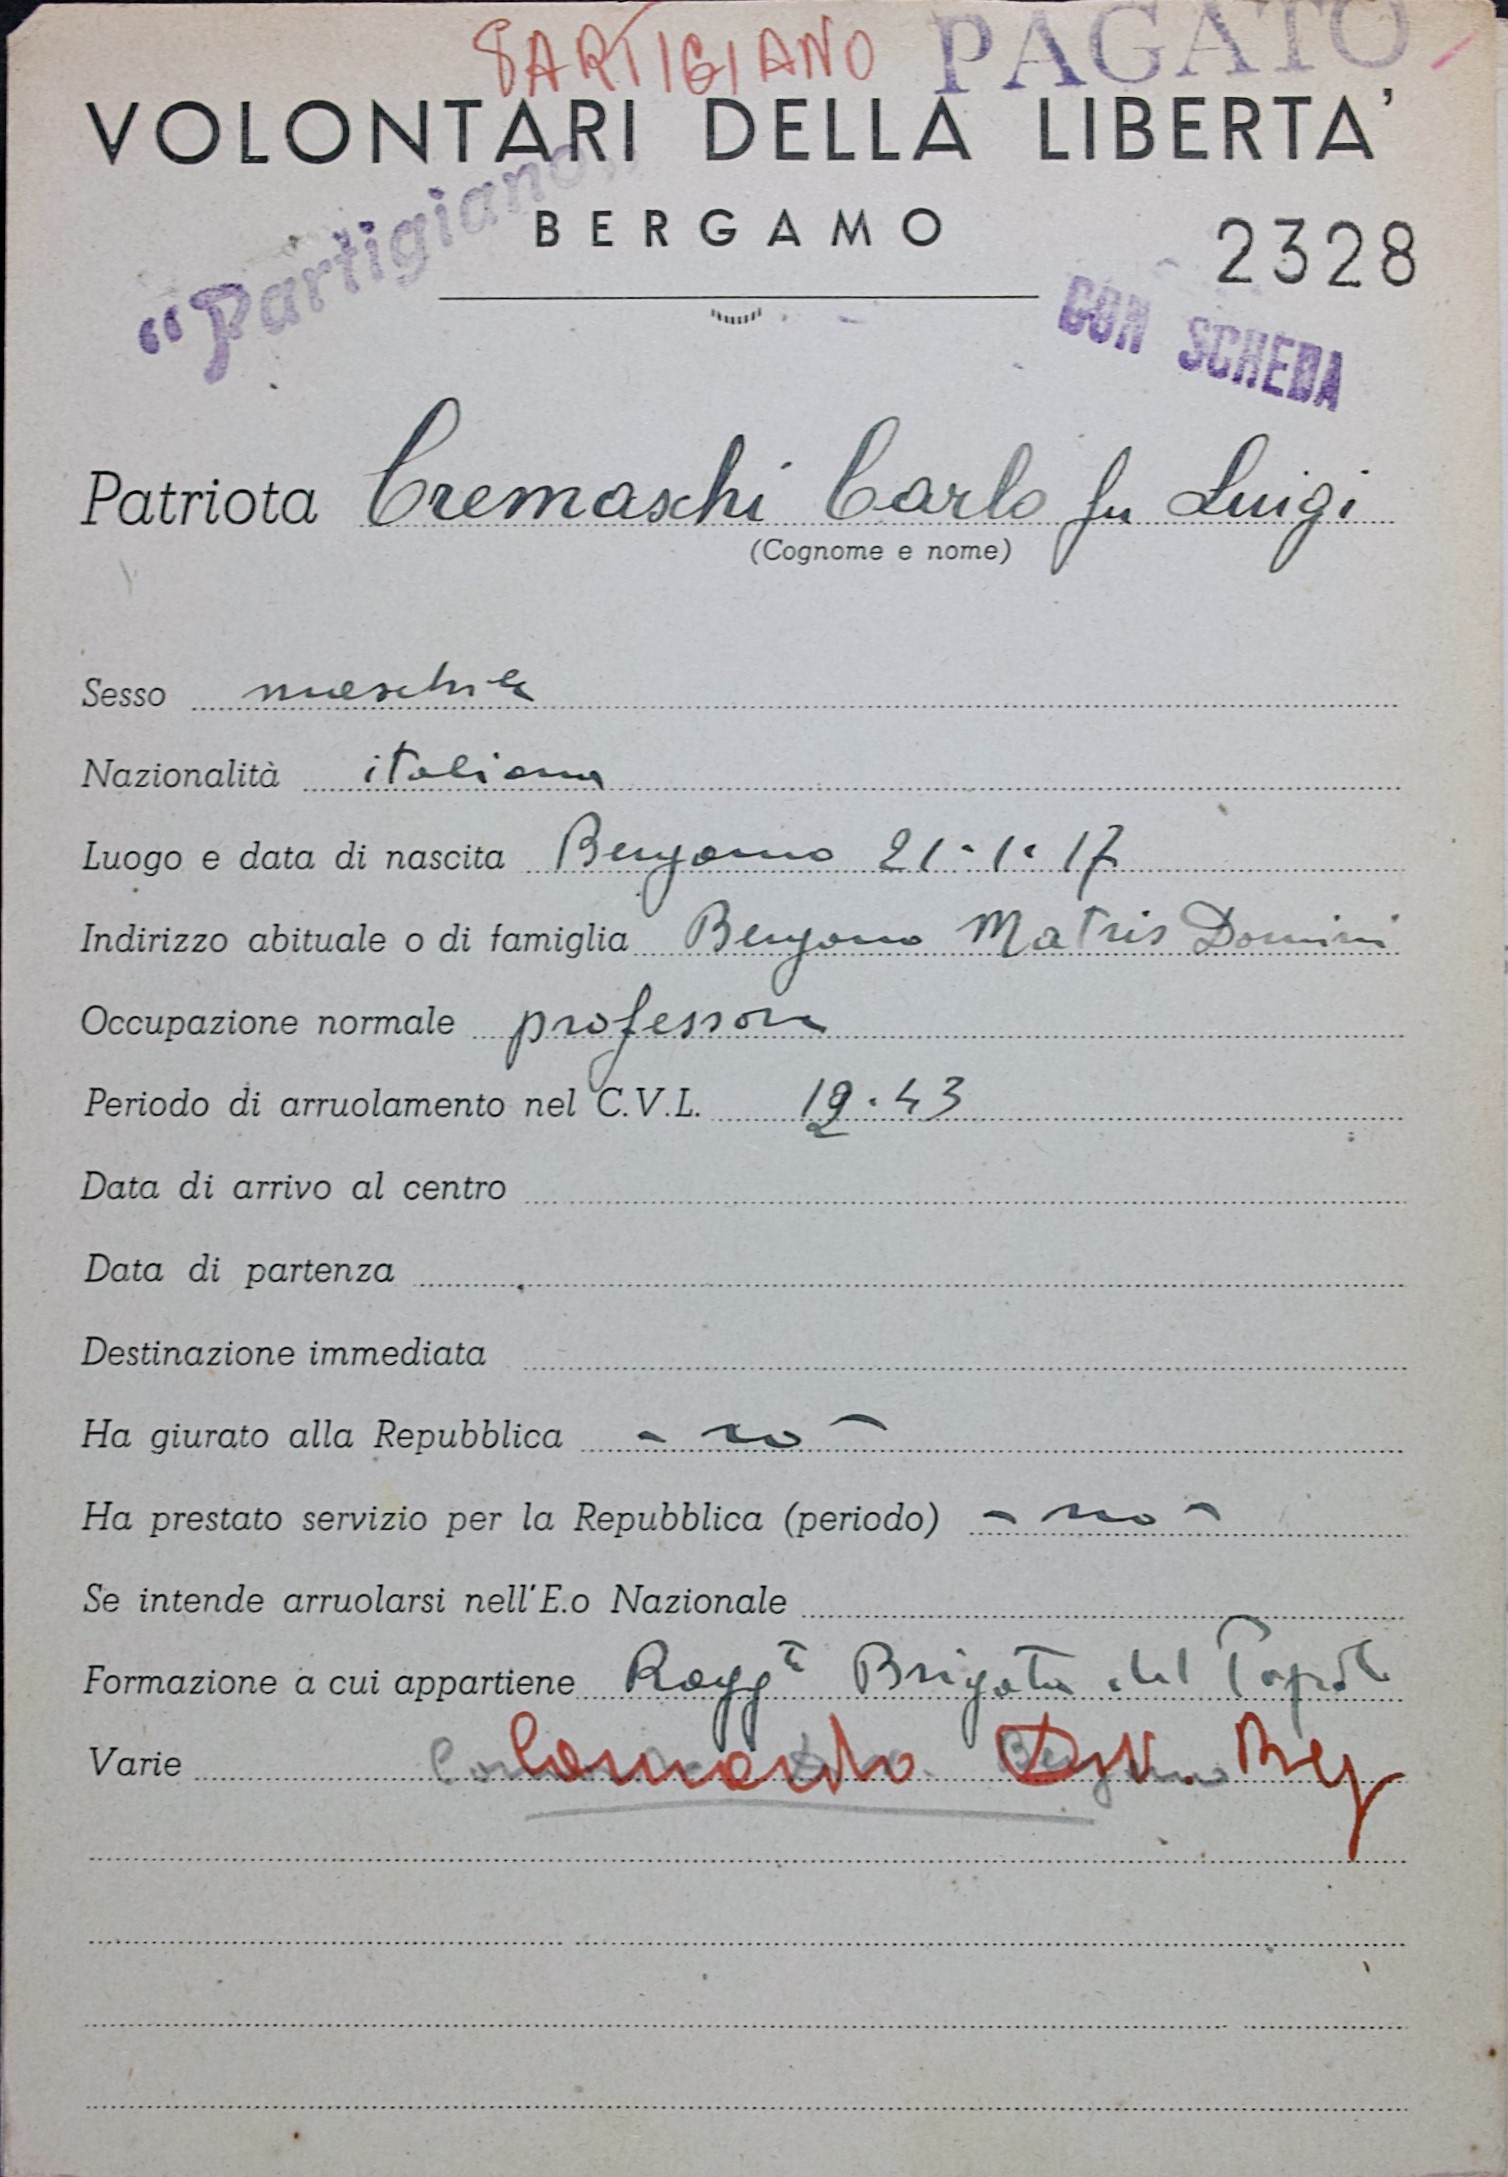 PARTIGIANO PAGATO
VOLONTARI DELLA LIBERTA'
"Partigiano„
BERGAMO
2328
CON SCHEDA
Patriota Cremaschi Carlo fu Luigi
(Cognome e nome)
Sesso maschile
Nazionalità italiana
Luogo e data di nascita Bergamo 21-1-17
Indirizzo abituale o di famiglia Bergamo Matris Domini
Occupazione normale professore
Periodo di arruolamento nel C.V.L. 43
Data di arrivo al centro
Data di partenza
Destinazione immediata
Ha giurato alla Repubblica - no -
Ha prestato servizio per la Repubblica (periodo) - no -
Se intende arruolarsi nell'E.o Nazionale
Formazione a cui appartiene Ragg.to Brigata del Popolo
Varie Comando Bergamo